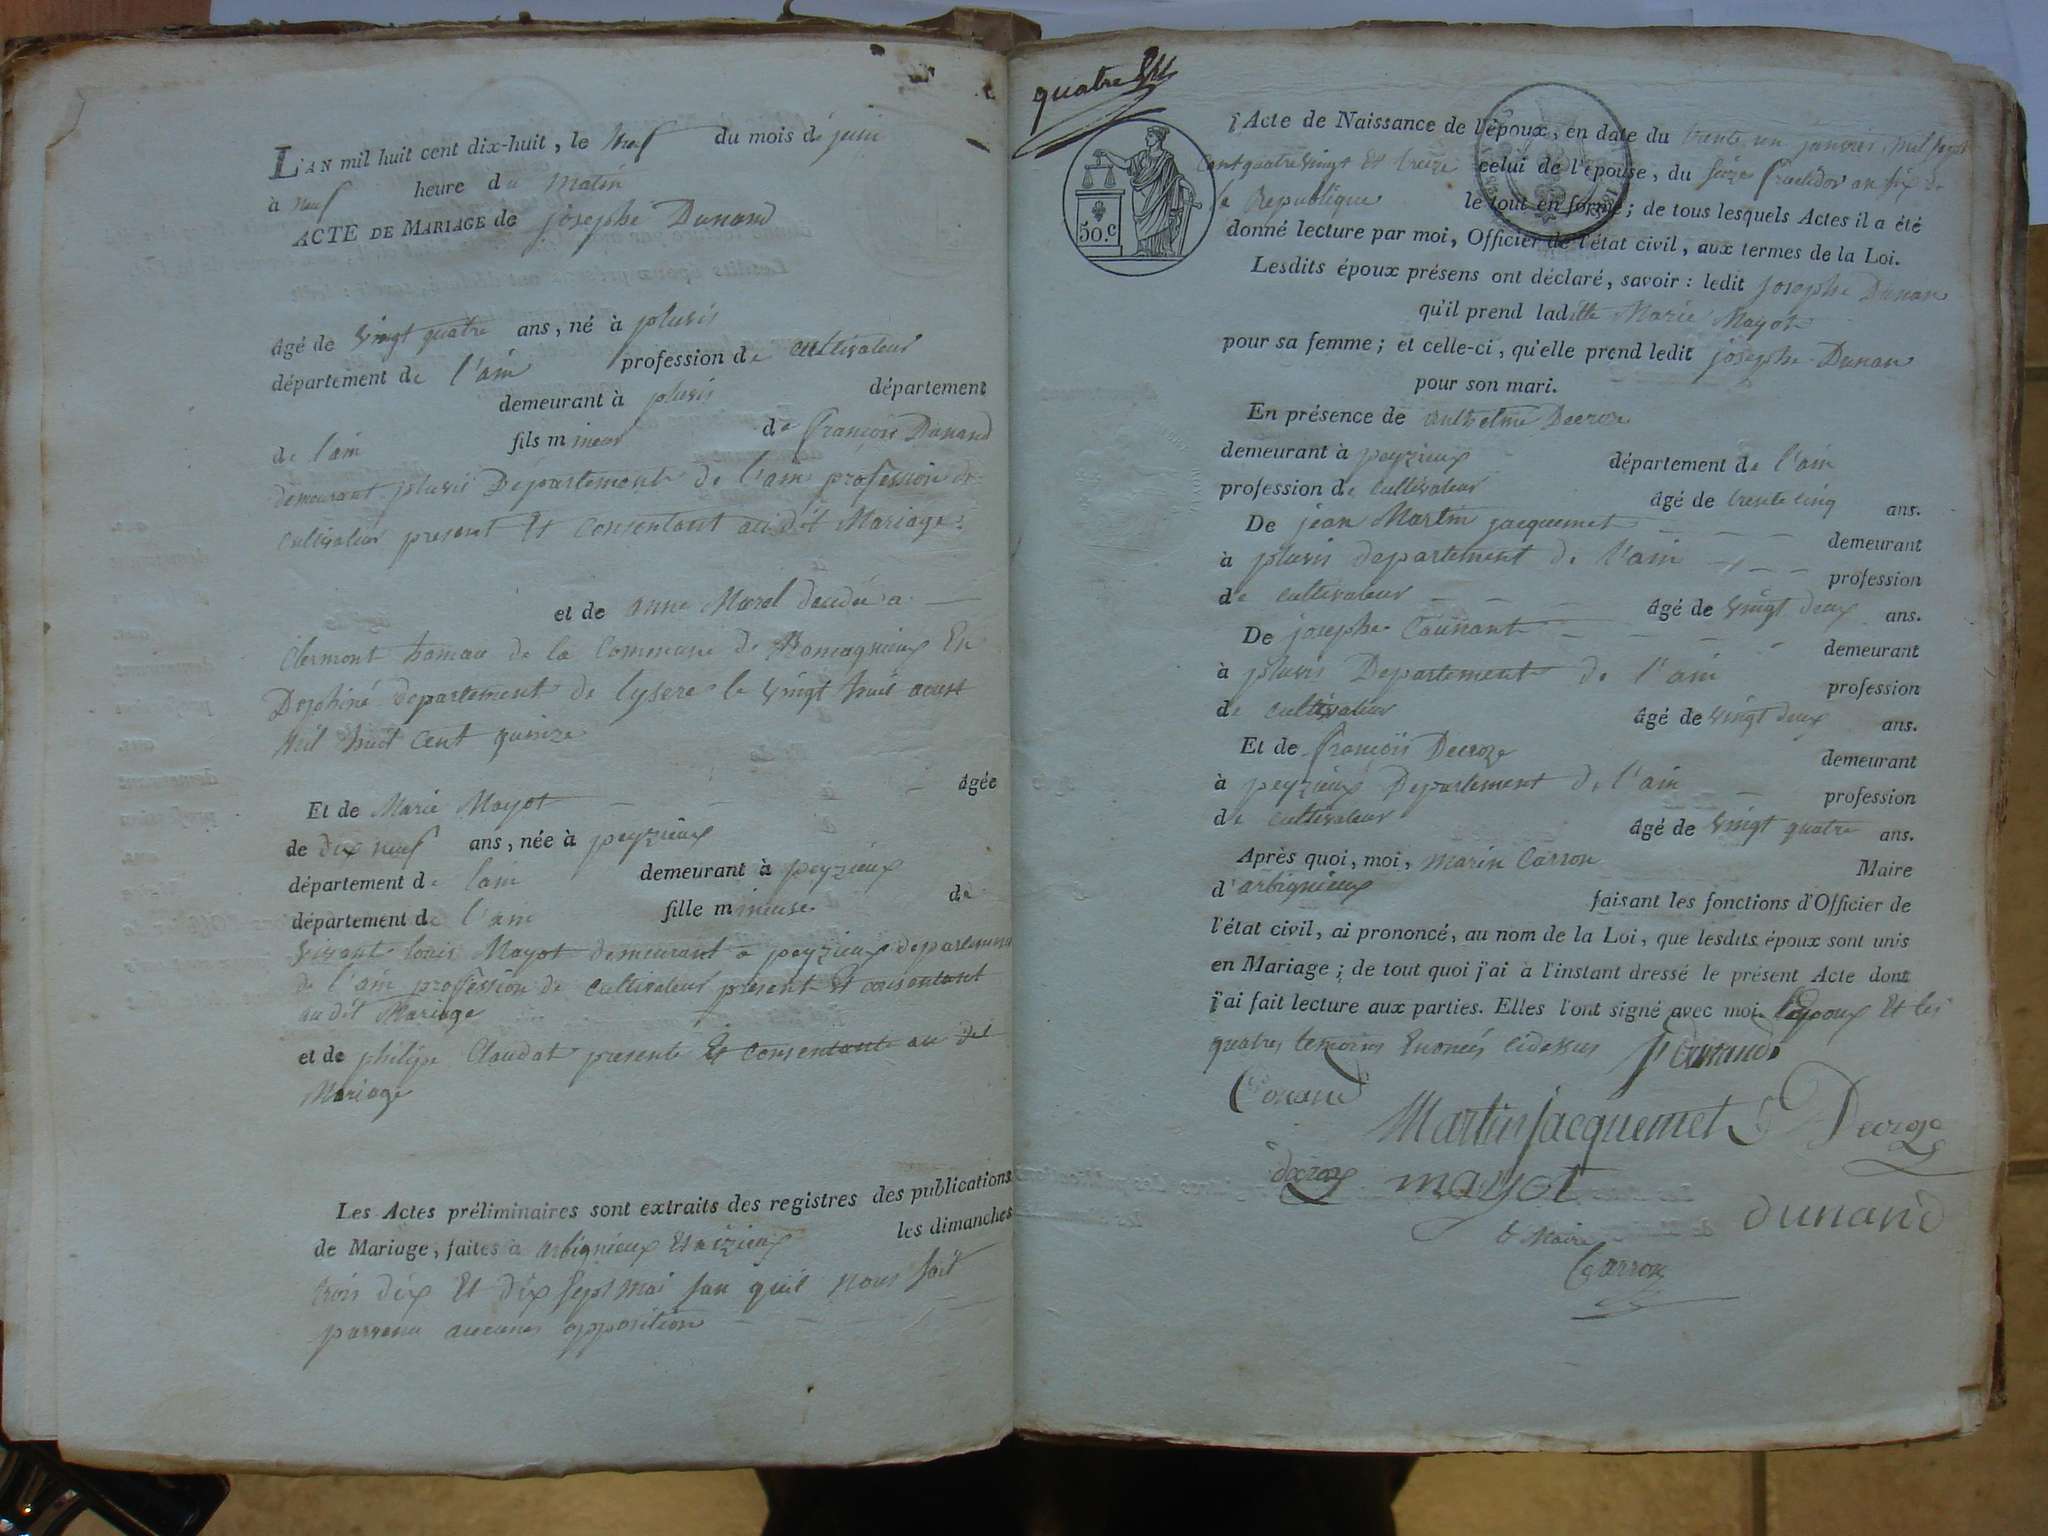 L'AN mil huit cent dix-huit, le neuf du mois de juin
à neuf heure du matin
ACTE DE MARIAGE de josephe Dunand
âgé de vingt quatre ans, né à pluvis
département de l'ain profession de cultivateur
demeurant à pluvis département
de l'ain fils mineur de françois Dunand
demeurant pluvis Département de l'ain profession de
cultivateur present Et consentant au dit Mariage
et de anne Morel décédée a
Clermont hamau de la Commune de Romagnieux En
département de lysere le vingt huit aoust
mil huit cent quinze
Et de Marie Mayot âgée
de dix neuf ans, née à peyzieux
département de lain demeurant à peyzieux
département de l'ain fille mineuse de
vivant louis Mayot demeurant a peyzieux departement
de l'ain profession de cultivateur present Et consentant
au dit Mariage
et de philippe Claudat presente Et consentante au dit
Mariage
Les Actes préliminaires sont extraits des registres des publications
de Mariage, faites à arbignieux Et a izieux les dimanches
trois dix Et dix sept mai san quil nous soit
parvenu aucunes opposition
quatre
50.c
l'Acte de Naissance de l'époux, en date du trente un janvier mil sept
Cent quatre vingt Et treize celui de l'épouse, du seize fructidor an six de
la Republique le tout en forme; de tous lesquels Actes il a été
donné lecture par moi, Officier de l'état civil, aux termes de la Loi.
Lesdits époux présens ont déclaré, savoir: ledit josephe Dunan
qu'il prend laditte Marie Mayot
pour sa femme; et celle-ci, qu'elle prend ledit josephe Dunan
pour son mari.
En présence de anthelme Decroze
demeurant à peyzieux département de l'ain
profession de cultivateur âgé de trente cinq ans.
De jean Martin jacquemet demeurant
à pluvis departement de l'ain profession
de cultivateur âgé de vingt deux ans.
De josephe Counant demeurant
à pluvis Departement de l'ain profession
de cultivateur âgé de vingt deux ans.
Et de françois Decroze demeurant
à peyzieux Departement de l'ain profession
de cultivateur âgé de vingt quatre ans.
Après quoi, moi, marin Carron Maire
d'arbignieux faisant les fonctions d'Officier de
l'état civil, ai prononcé, au nom de la Loi, que lesdits époux sont unis
en Mariage; de tout quoi j'ai à l'instant dressé le présent Acte dont
j'ai fait lecture aux parties. Elles l'ont signé avec moi l'époux Et les
quatres temoins Enoncés cidessus
Martin jacquemet Decroze
decroze mayot
dunand
le Maire
Carron